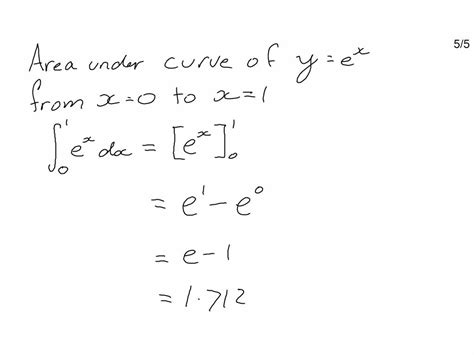 5/5
Area under curve of y=eˣ
from x=0 to x=1
∫₀¹ eˣ dx = [eˣ]₀¹
= e¹ − e⁰
= e − 1
= 1.712